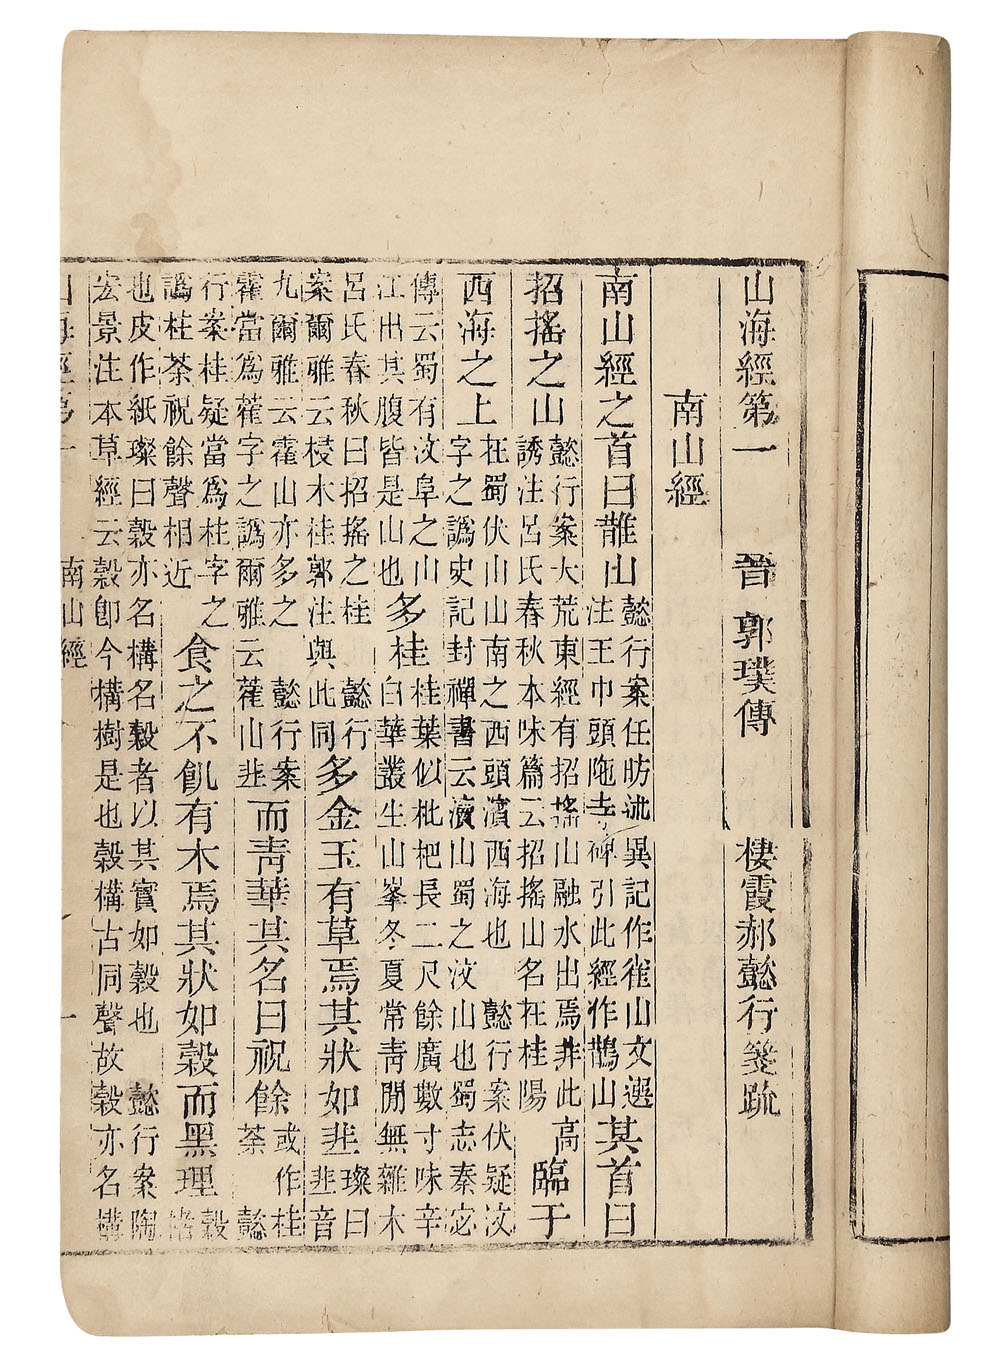 山海經第一 晉 郭璞傳 棲霞郝懿行箋疏
南山經
南山經之首曰䧿山懿行案任昉述異記作雀山文選注王巾頭陁寺碑引此經作鵲山其首曰
招搖之山懿行案大荒東經有招搖山融水出焉非此高誘注呂氏春秋本味篇云招搖山名在桂陽臨于
西海之上在蜀伏山山南之西頭濱西海也 懿行案伏疑汶字之譌史記封禪書云瀆山蜀之汶山也蜀志秦宓
傳云蜀有汶阜之山江出其腹皆是山也多桂桂葉似枇杷長二尺餘廣數寸味辛白華叢生山峯冬夏常靑閒無雜木
呂氏春秋曰招搖之桂 懿行案爾雅云梫木桂郭注與此同多金玉有草焉其狀如韭璨曰韭音
九爾雅云霍山亦多之 懿行案霍當爲藿字之譌爾雅云藿山韭而靑華其名曰祝餘或作桂荼 懿
行案桂疑當爲柱字之譌柱荼祝餘聲相近食之不飢有木焉其狀如穀而黑理穀楮
也皮作紙璨曰穀亦名構名穀者以其實如穀也 懿行案陶宏景注本草經云穀卽今構樹是也穀構古同聲故穀亦名構
山海經第一 南山經 一